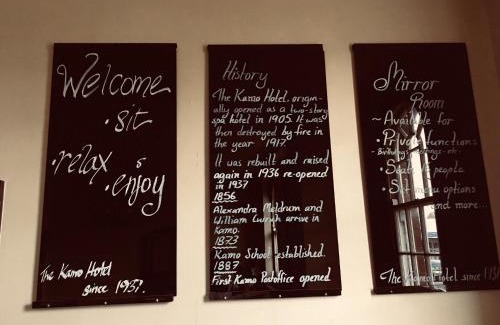 Welcome
• sit
• relax &
• enjoy
The Kamo Hotel
since 1937.
History
The Kamo Hotel, origin-
ally opened as a two-story
spa hotel in 1905. It was
then destroyed by fire in
the year 1917.
It was rebuilt and raised
again in 1936 re-opened
in 1937
1856
Alexandra Meldrum and
William arrive in
Kamo.
1873
Kamo School established.
1887
First Kamo Postoffice opened
Mirror
Room
~ Available for
• Private functions
• people
• Set menu options
and more...
The Kamo Hotel since